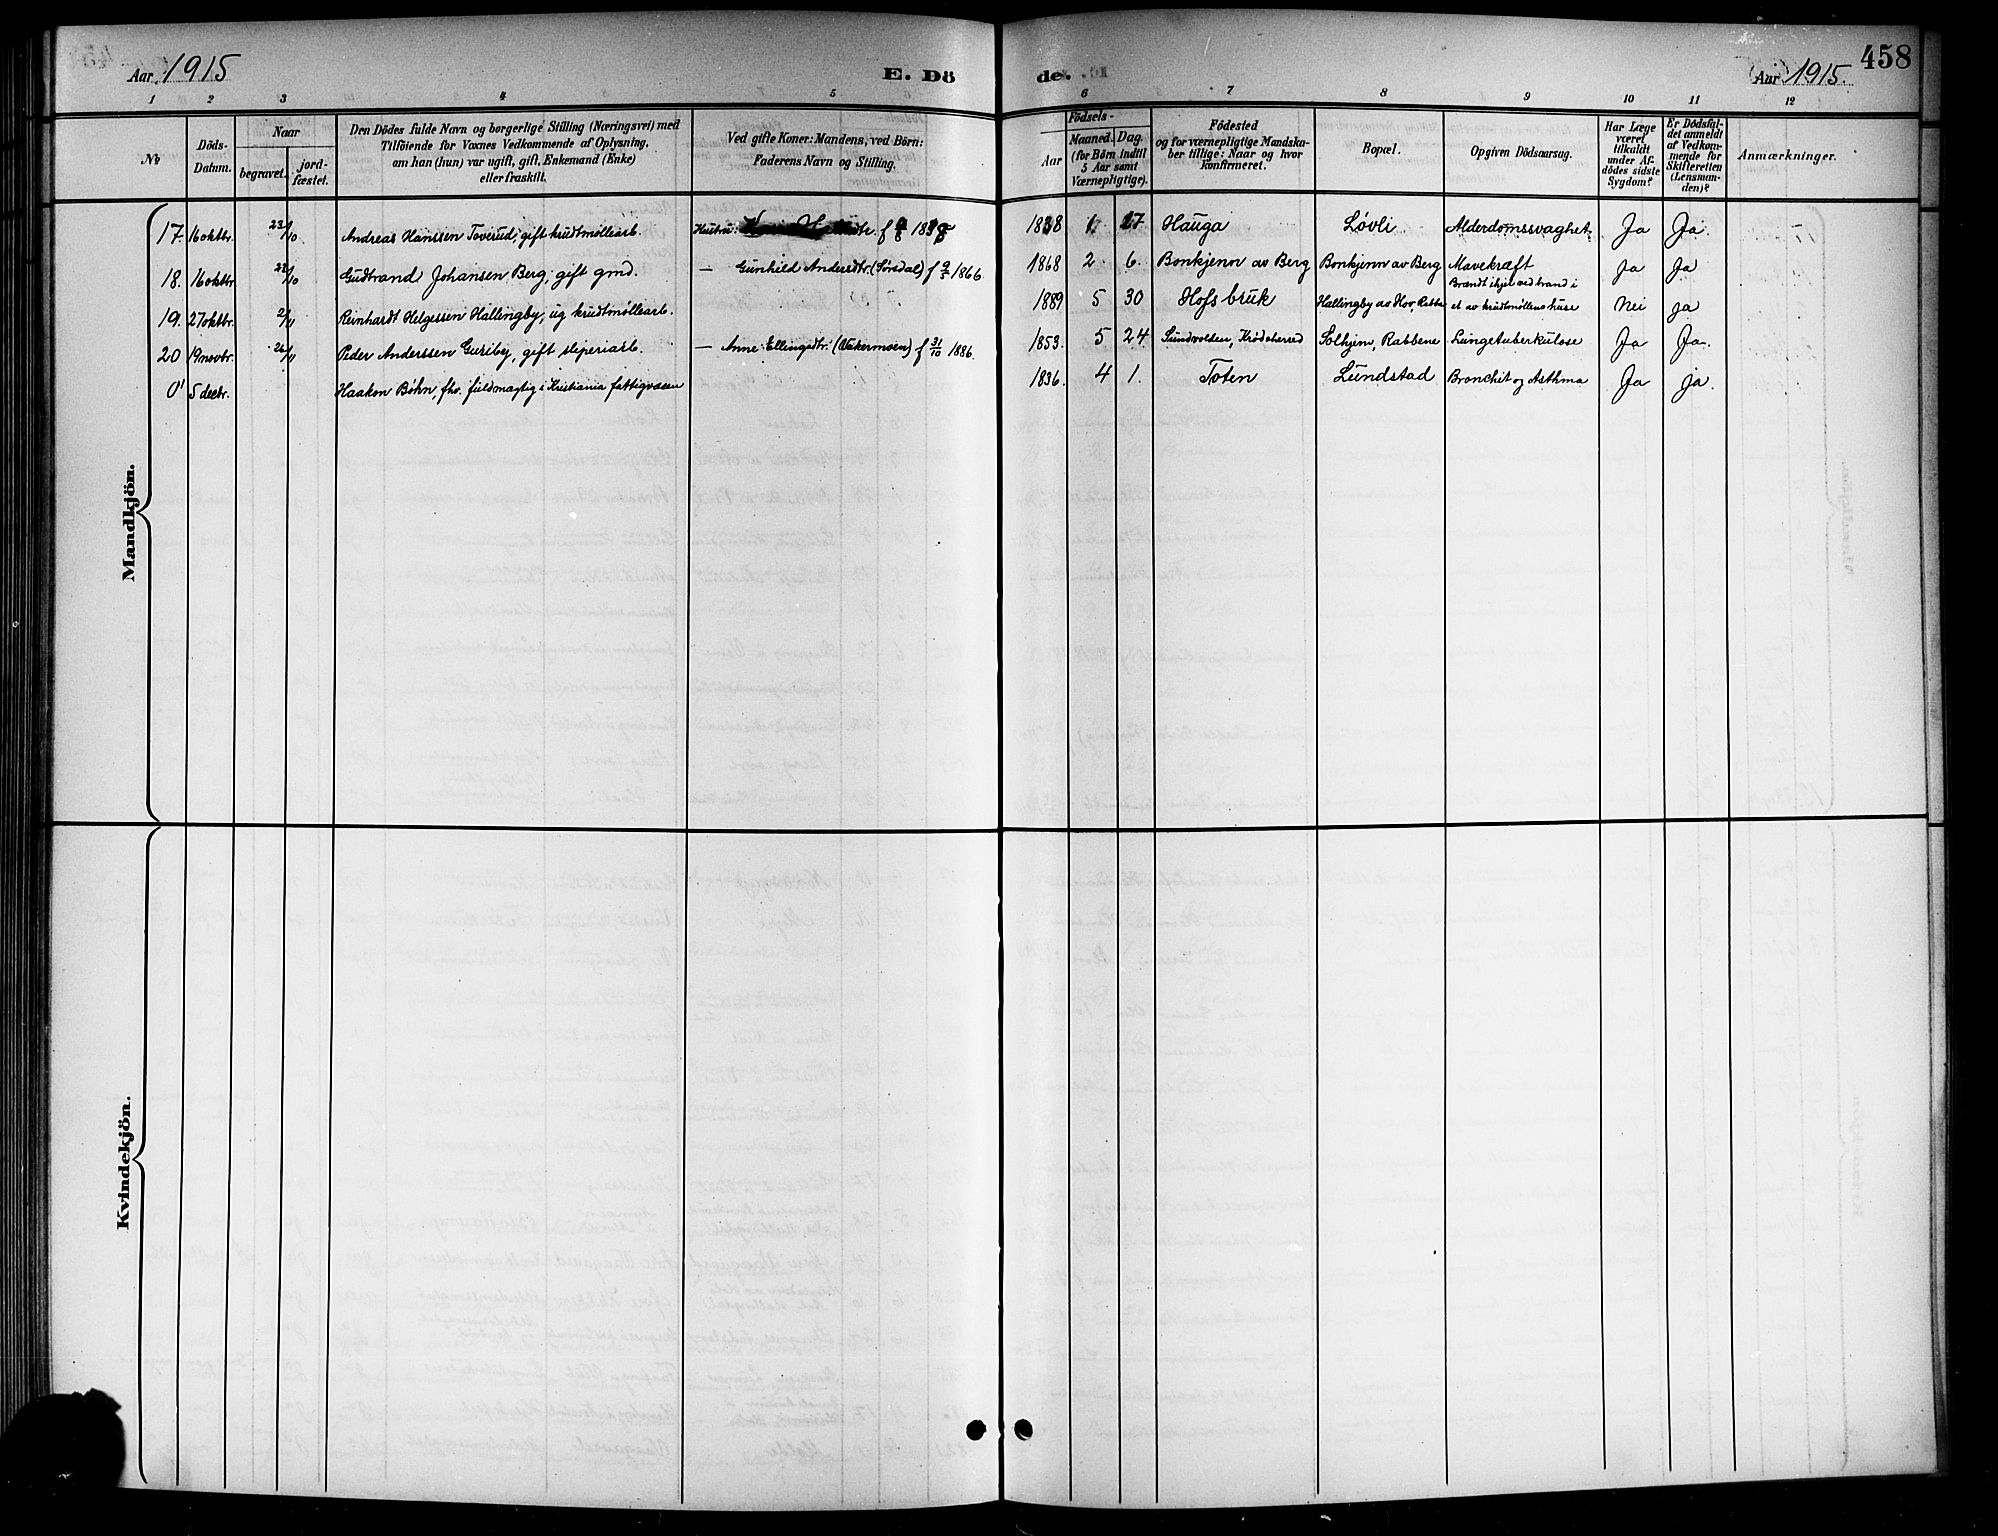 Aar 1915
E. Dö
de.
Aar 1915.
458
1 2 3 4 5 6 7 8 9 10 11 12
No
Döds-Datum.
Naar
begravet.
jord-fæstet.
Den Dödes fulde Navn og borgerlige Stilling (Næringsvei) med
Tilföiende for Voxnes Vedkommende af Oplysning,
om han (hun) var ugift, gift, Enkemand (Enke)
eller fraskilt.
Ved gifte Koner: Mandens, ved Börn:
Faderens Navn og Stilling.
Födsels-
Aar
Maaned.
Dag.
(for Börn indtil
5 Aar samt
Værnepligtige).
Födested
og for værnepligtige Mandska-
ber tillige: Naar og hvor
konfirmeret.
Bopæl.
Opgiven Dödsaarsag.
Har Læge
været
tilkaldt
under Af-
dödes sidste
Sygdom?
Er Dödsfal-
det anmeldt
af Vedkom-
mende for
Skifteretten
(Lensman-
den)?
Anmærkninger.
Mandkjön.
17. 16 oktbr. 23/10 Andreas Hanssen Toverud, gift krudtmøllearb. Hustru: 1838 17 Hauga Løvli Alderdomssvaghet Ja Ja.
18. 16 oktbr. 22/10 Gudbrand Johansen Berg, gift gmd. — Gunhild Andersdtr. (Sørsdal) f 9/2 1866. 1868 2 6. Bonkjenn av Berg Bonkjenn av Berg Mavekræft Ja Ja
19. 27 oktbr. 2/11 Reinhardt Helgessen Hallingby, ug krudtmøllearb. 1889 5 30 Hofsbruk Hallingby av Hov, Brændt ihjel ved brand i
et av krudtmøllens huse Nei ja
20 19 novbr. 26/11 Peder Anderssen Guriby, gift sliperiarb. — Anne Ellingsdtr. (Vakermoen) f 31/10 1886. 1853. 5 24 Sundvolden, Krødsherred Solhjem, Rabbene Lungetuberkulose Ja Ja.
0' 5 decbr. Haakon Bøhn, fhv. fuldmægtig i Kristiania fattigvæsen 1836. 4 1. Toten Lundstad Bronchit og Asthma Ja ja.
Kvindekjön.